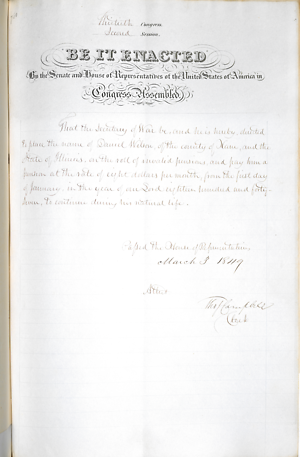 Thirtieth Congress
Second Session
BE IT ENACTED
By the Senate and House of Representatives of the United States of America in
Congress Assembled
That the Secretary of War be and he is hereby directed
to place the name of Daniel Wilson, of the county of and the
State of Illinois, on the roll of invalid pensions, and pay him a
pension at the rate of eight dollars per month, from the first day
of January, in the year of our Lord eighteen hundred and forty
to continue during his natural life.
Passed the House of Representatives
March 3 1849
Attest
Campbell
Clerk